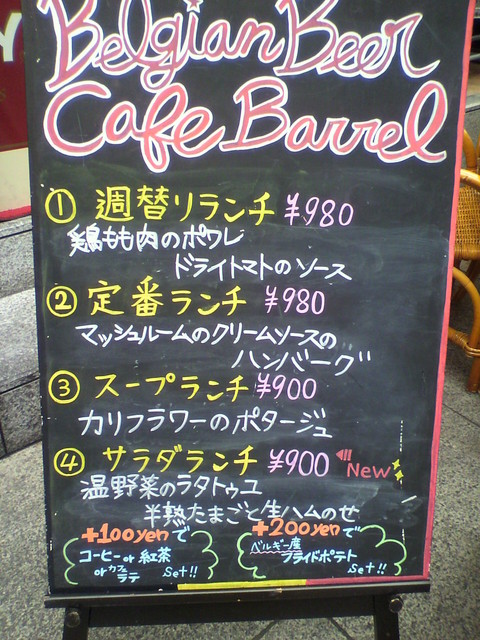 Belgian Beer
Cafe Barrel
① 週替リランチ ¥980
鶏もも肉のポワレ
ドライトマトのソース
② 定番ランチ ¥980
マッシュルームのクリームソースの
ハンバーグ
③ スープランチ ¥900
カリフラワーのポタージュ
④ サラダランチ ¥900 New
温野菜のラタトゥユ
半熟たまごと生ハムのせ
+100yenで
コーヒー or 紅茶
or カフェラテ set!!
+200yenで
ベルギー産
フライドポテト
set!!